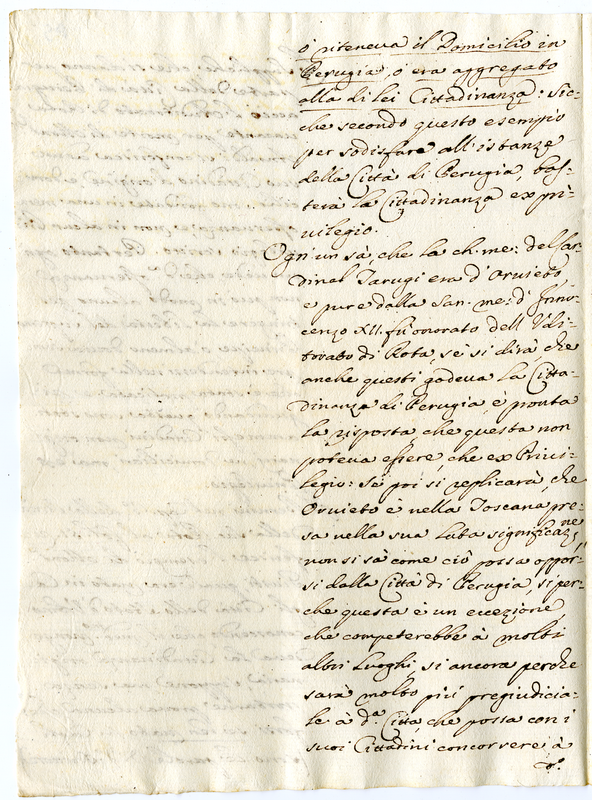 ò riteneva il Domicilio in
Perugia, ò era aggregato
alla di lei Cittadinanza: sic=
che secondo questo esempio
per sodisfare all'istanze
della Città di Perugia, bas=
terà la Cittadinanza ex pri=
vilegio.
Ogn'un sà, che la ch: me: del Car=
dinal Tarugi era d'Orvieto,
e pure dalla San: me: d'Inno=
cenzo XII. fù onorato dell'Udi=
torato di Rota, sè si dirà, che
anche questi godeva la Citta=
dinanza di Perugia, è pronta
la risposta che questa non
poteva essere, che ex Privi=
legio: Sè poi si replicarà, che
Orvieto è nella Toscana pre=
sa nella sua lata significaz.ne
non si sà come ciò possa oppor=
si dalla Città di Perugia, si per=
che questa è un eccezione
che competerebbe à molti
altri Luoghi si ancora perche
sarà molto più pregiudicia=
le à d.a Città, che possa con i
suoi Cittadini concorrere à